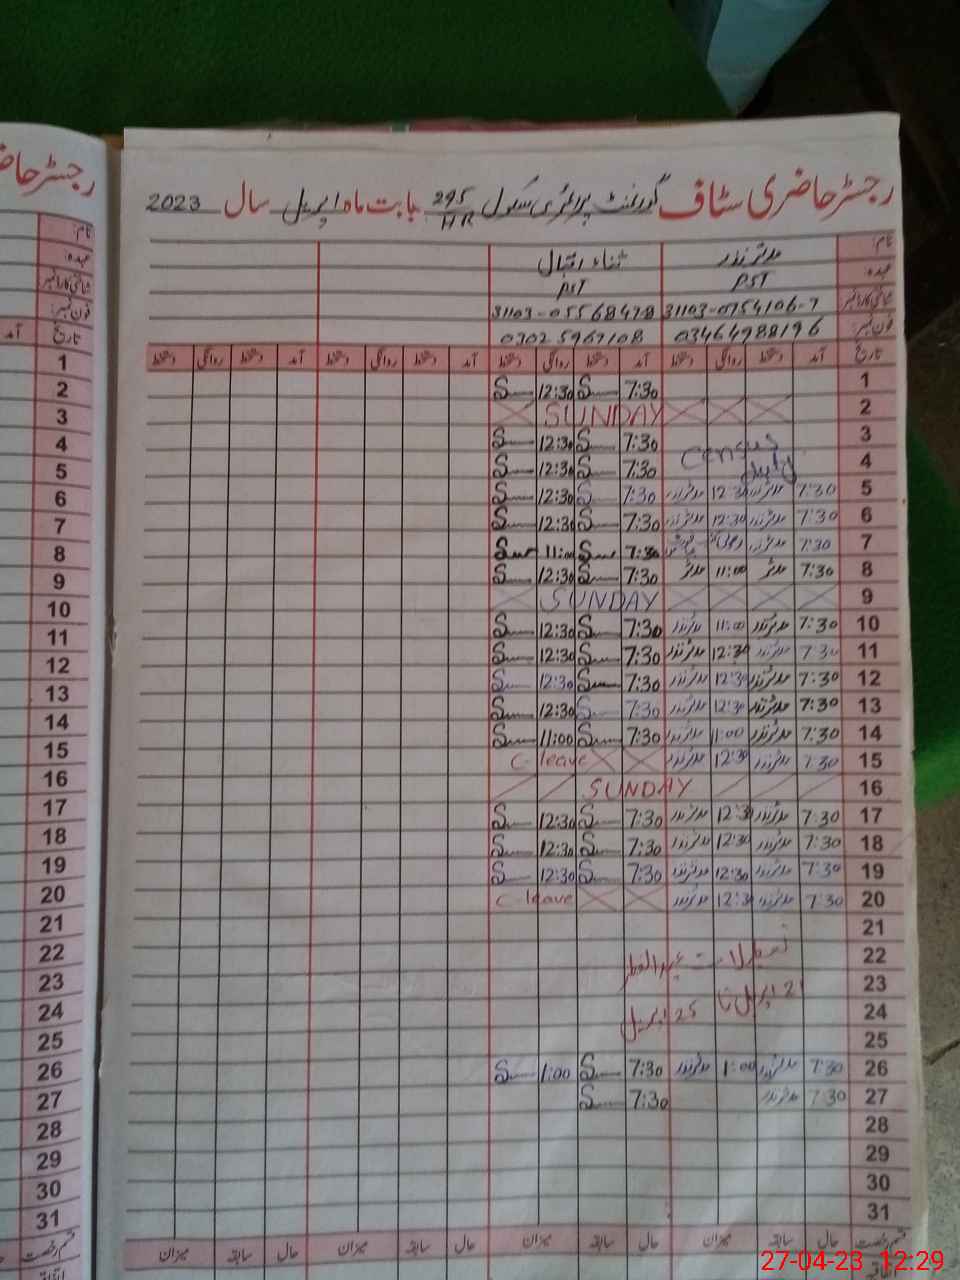 رجسٹر حاضری سٹاف گورنمنٹ پرائمری سکول 295/HR بابت ماہ اپریل سال 2023
نام: مدثر نذر ثناء اقبال
عہدہ: PST PST
شناختی کارڈ نمبر 31103-0754106-7 31103-0556847-8
فون نمبر: 03464988196 0302 5967108
تاریخ آمد دستخط روانگی دستخط آمد دستخط روانگی دستخط آمد دستخط روانگی دستخط آمد دستخط روانگی دستخط
1 7:30 S 12:30 S
2 SUNDAY
3 Census 7:30 S 12:30 S
4 duty 7:30 S 12:30 S
5 7:30 مدثر نذر 12:30 مدثر نذر 7:30 S 12:30 S
6 7:30 مدثر نذر 12:30 مدثر نذر 7:30 S 12:30 S
7 7:30 مدثر نذر 7:30 S 11:00 S
8 7:30 مدثر 11:00 مدثر 7:30 S 12:30 S
9 SUNDAY
10 7:30 مدثر نذر 11:00 مدثر نذر 7:30 S 12:30 S
11 7:30 مدثر نذر 12:30 مدثر نذر 7:30 S 12:30 S
12 7:30 مدثر نذر 12:30 مدثر نذر 7:30 S 12:30 S
13 7:30 مدثر نذر 12:30 مدثر نذر 7:30 S 12:30 S
14 7:30 مدثر نذر 11:00 مدثر نذر 7:30 S 11:00 S
15 7:30 مدثر نذر 12:30 مدثر نذر C-leave
16 SUNDAY
17 7:30 مدثر نذر 12:30 مدثر نذر 7:30 S 12:30 S
18 7:30 مدثر نذر 12:30 مدثر نذر 7:30 S 12:30 S
19 7:30 مدثر نذر 12:30 مدثر نذر 7:30 S 12:30 S
20 7:30 مدثر نذر 12:30 مدثر نذر C-leave
21
22 تعطیلات عیدالفطر
23 21 اپریل تا
24 25 اپریل
25
26 7:30 مدثر نذر 1:00 مدثر نذر 7:30 S 1:00 S
27 7:30 مدثر نذر 7:30 S
28
29
30
31
قسم رخصت حال سابقہ میزان حال سابقہ میزان حال سابقہ میزان حال سابقہ میزان
رجسٹر
نام:
عہدہ:
شناختی کارڈ نمبر
فون نمبر:
تاریخ آمد
1
2
3
4
5
6
7
8
9
10
11
12
13
14
15
16
17
18
19
20
21
22
23
24
25
26
27
28
29
30
31
قسم رخصت
27-04-23 12:29